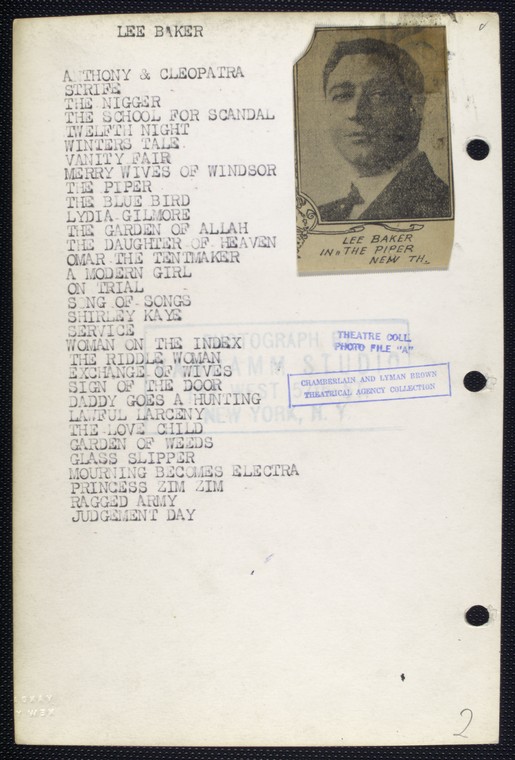 LEE BAKER
ANTHONY & CLEOPATRA
STRIFE
THE NIGGER
THE SCHOOL FOR SCANDAL
TWELFTH NIGHT
WINTERS TALE
VANITY FAIR
MERRY WIVES OF WINDSOR
THE PIPER
THE BLUE BIRD
LYDIA GILMORE
THE GARDEN OF ALLAH
THE DAUGHTER OF HEAVEN
OMAR THE TENTMAKER
A MODERN GIRL
ON TRIAL
SONG OF SONGS
SHIRLEY KAYE
SERVICE
WOMAN ON THE INDEX
THE RIDDLE WOMAN
EXCHANGE OF WIVES
SIGN OF THE DOOR
DADDY GOES A HUNTING
LAWFUL LARCENY
THE LOVE CHILD
GARDEN OF WEEDS
GLASS SLIPPER
MOURNING BECOMES ELECTRA
PRINCESS ZIM ZIM
RAGGED ARMY
JUDGEMENT DAY
LEE BAKER
IN "THE PIPER
NEW TH.
PHOTOGRAPH
STUDIO
WEST
NEW YORK, N. Y.
THEATRE COLL.
PHOTO FILE "A"
CHAMBERLAIN AND LYMAN BROWN
THEATRICAL AGENCY COLLECTION
2